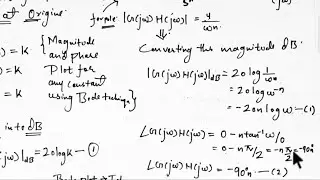 at Origin:
= K { Magnitude
and phase
= K Plot for
any constant
using Bode technique
into dB
(jω)|dB = 20 log K — ①
for pole |G(jω)H(jω)| = 1/ωⁿ
Converting this magnitude dB:
|G(jω)H(jω)|dB = 20 log 1/ωn
= 20 log ω⁻ⁿ
= -20n log ω — (1)
∠G(jω)H(jω) = 0 - n tan⁻¹ ω/0
= 0 - n π/2 = -n π/2 = -90°
∠G(jω)H(jω) = -90°n — (2)